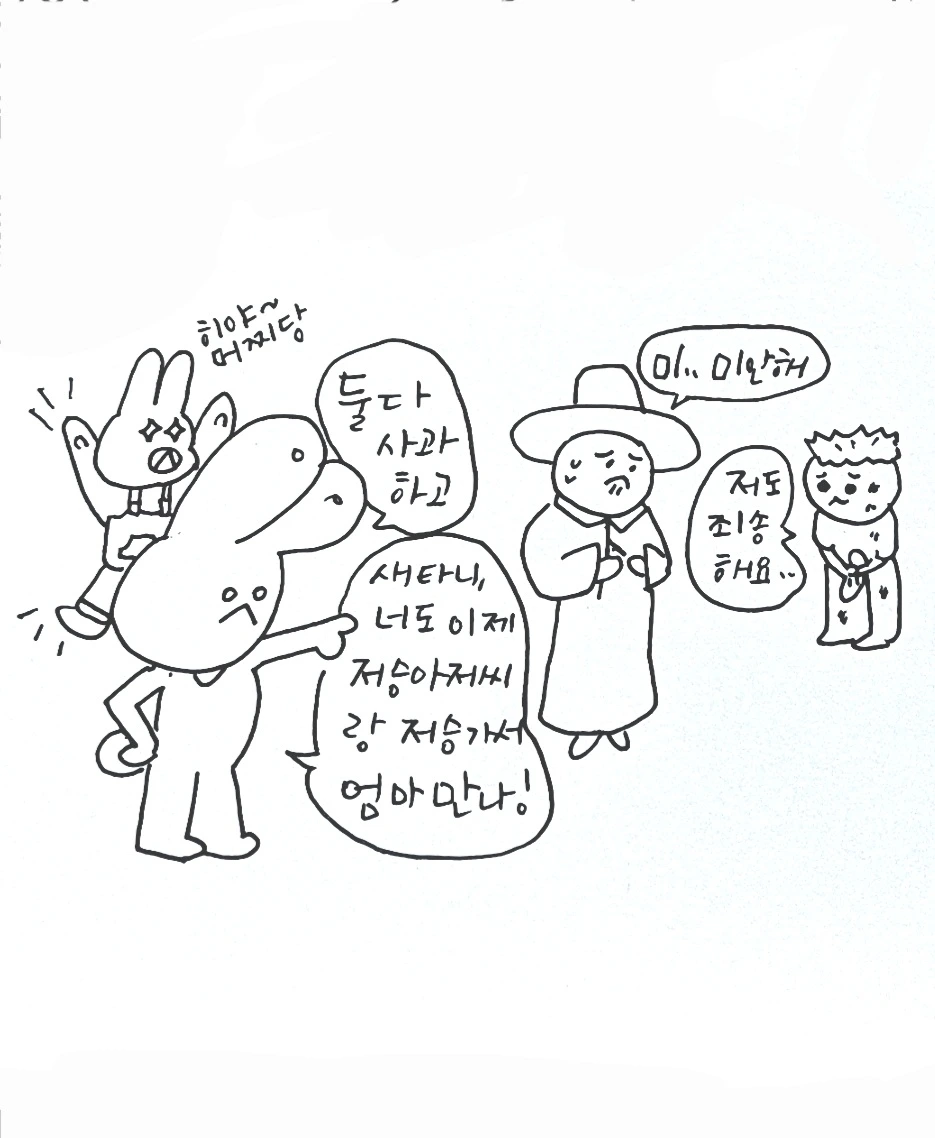 히야~
머찌당
둘다
사과
하고
미.. 미안해
저도
죄송
해요..
새타니,
너도 이제
저승아저씨
랑 저승가서
엄마 만나!